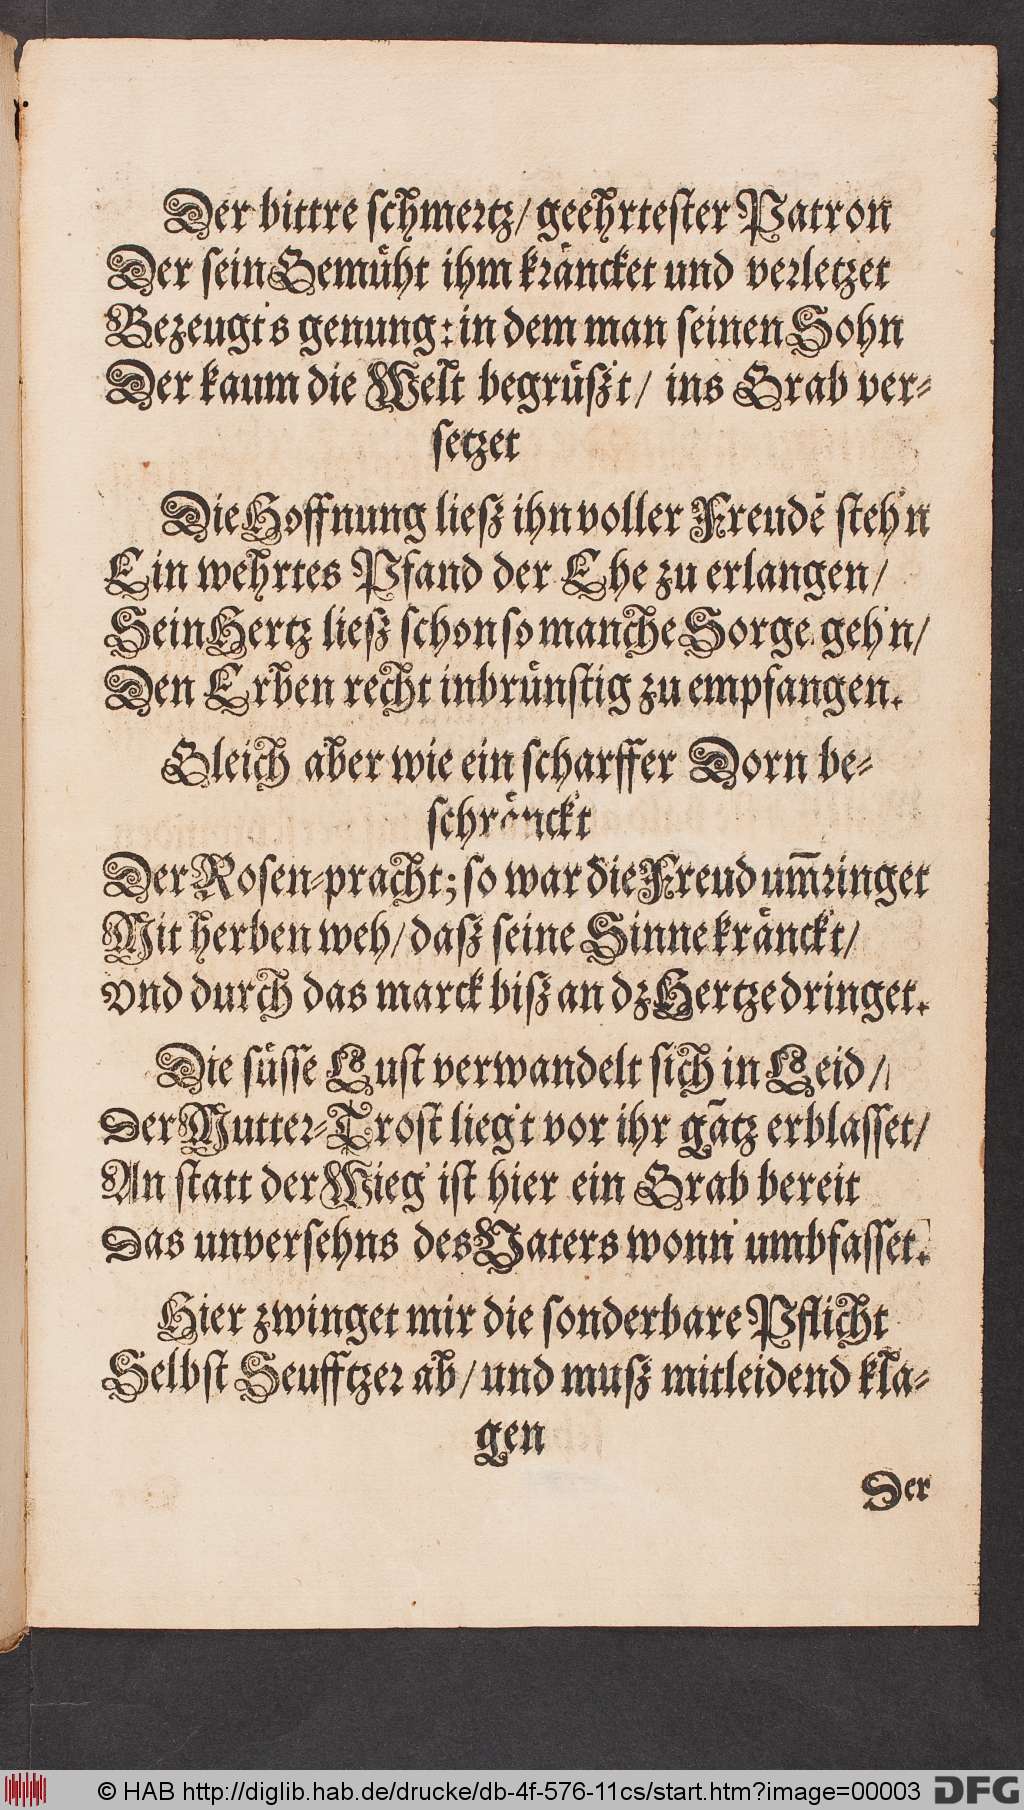 Der bittre schmertz/ geehrtester Patron
Der sein Gemüht ihm kräncket und verletzet
Bezeugt's genung: in dem man seinen Sohn
Der kaum die Welt begrüßt/ ins Grab ver-
setzet
Die Hoffnung ließ ihn voller Freudē steh'n
Ein wehrtes Pfand der Ehe zu erlangen/
Sein Hertz ließ schon so manche Sorge geh'n/
Den Erben recht inbrünstig zu empfangen.
Gleich aber wie ein scharffer Dorn be-
schränckt
Der Rosen-pracht; so war die Freud um̄ringet
Mit herben weh/ daß seine Sinne kränck't/
vnd durch das marck biß an dz Hertze dringet.
Die süsse Lust verwandelt sich in Leid/
Der Mutter-Trost lieg't vor ihr gātz erblasset/
An statt der Wieg' ist hier ein Grab bereit
Das unversehns des Vaters wonn' umbfasset.
Hier zwinget mir die sonderbare Pflicht
Selbst Seufftzer ab/ und muß mitleidend kla-
gen
Der
© HAB http://diglib.hab.de/drucke/db-4f-576-11cs/start.htm?image=00003
DFG